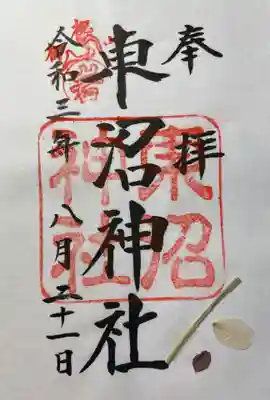 奉拝
東沼神社
東沼
神社
令和三年八月二十一日